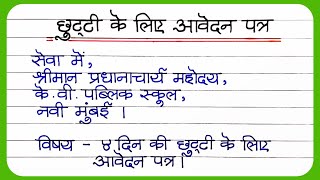 छुट्टी के लिए आवेदन पत्र
सेवा में,
श्रीमान प्रधानाचार्य महोदय,
के. वी. पब्लिक स्कूल,
नवी मुंबई ।
विषय - ४ दिन की छुट्टी के लिए
आवेदन पत्र ।